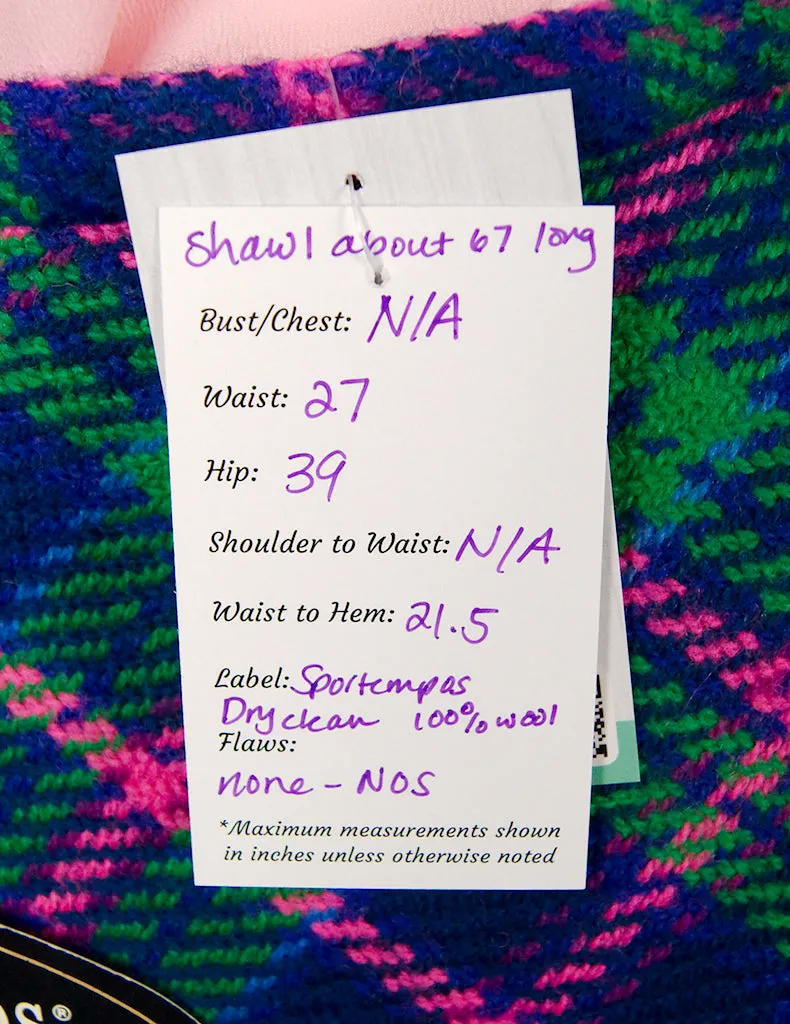 Shawl about 67 long
Bust/Chest: N/A
Waist: 27
Hip: 39
Shoulder to Waist: N/A
Waist to Hem: 21.5
Label: Sportempos
Dryclean 100% wool
Flaws:
none - NOS
*Maximum measurements shown
in inches unless otherwise noted
os®